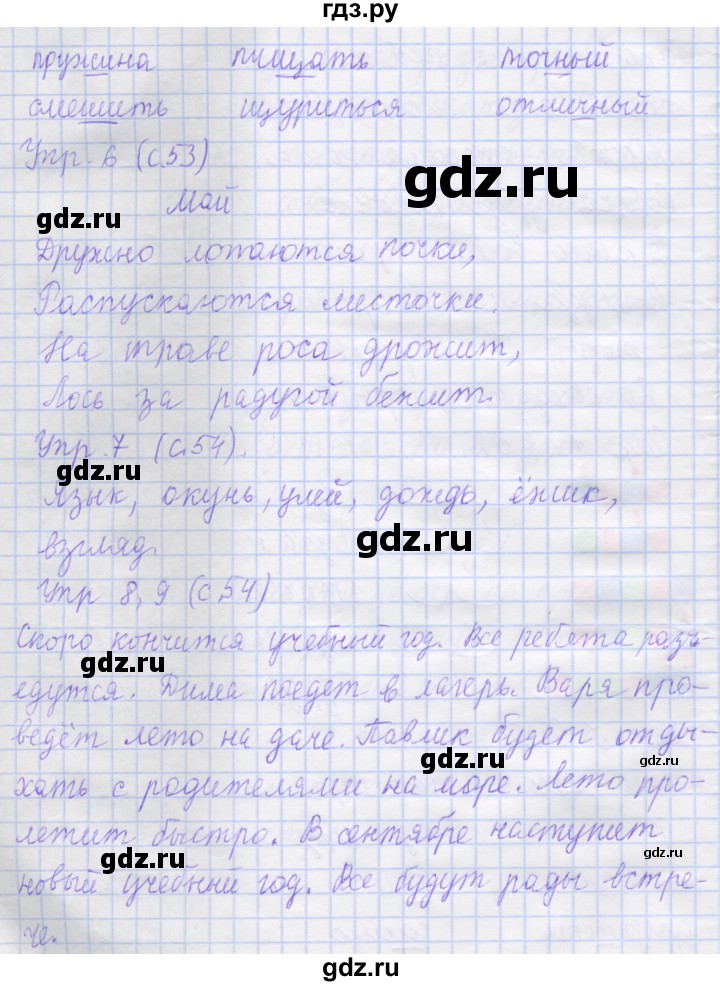 гдз.ру
пружина пищать точный
смешить щуриться отличный
Упр. 6 (с.53)
gdz.ru
gdz.ru
Май
Дружно лопаются почки,
Распускаются листочки.
На траве роса дрожит,
Лось за радугой бежит.
Упр. 7 (с.54).
gdz.ru
язык, окунь, улей, дождь, ёжик,
gdz.ru
взгляд.
Упр 8, 9 (с.54)
Скоро кончится учебный год. Все ребята разъ-
gdz.ru
едутся. Дима поедет в лагерь. Варя про-
ведёт лето на даче. Павлик будет отды-
gdz.ru
gdz.ru
хать с родителями на море. Лето про-
летит быстро. В сентябре наступит
gdz.ru
gdz.ru
новый учебный год. Все будут рады встре-
че.
gdz.ru